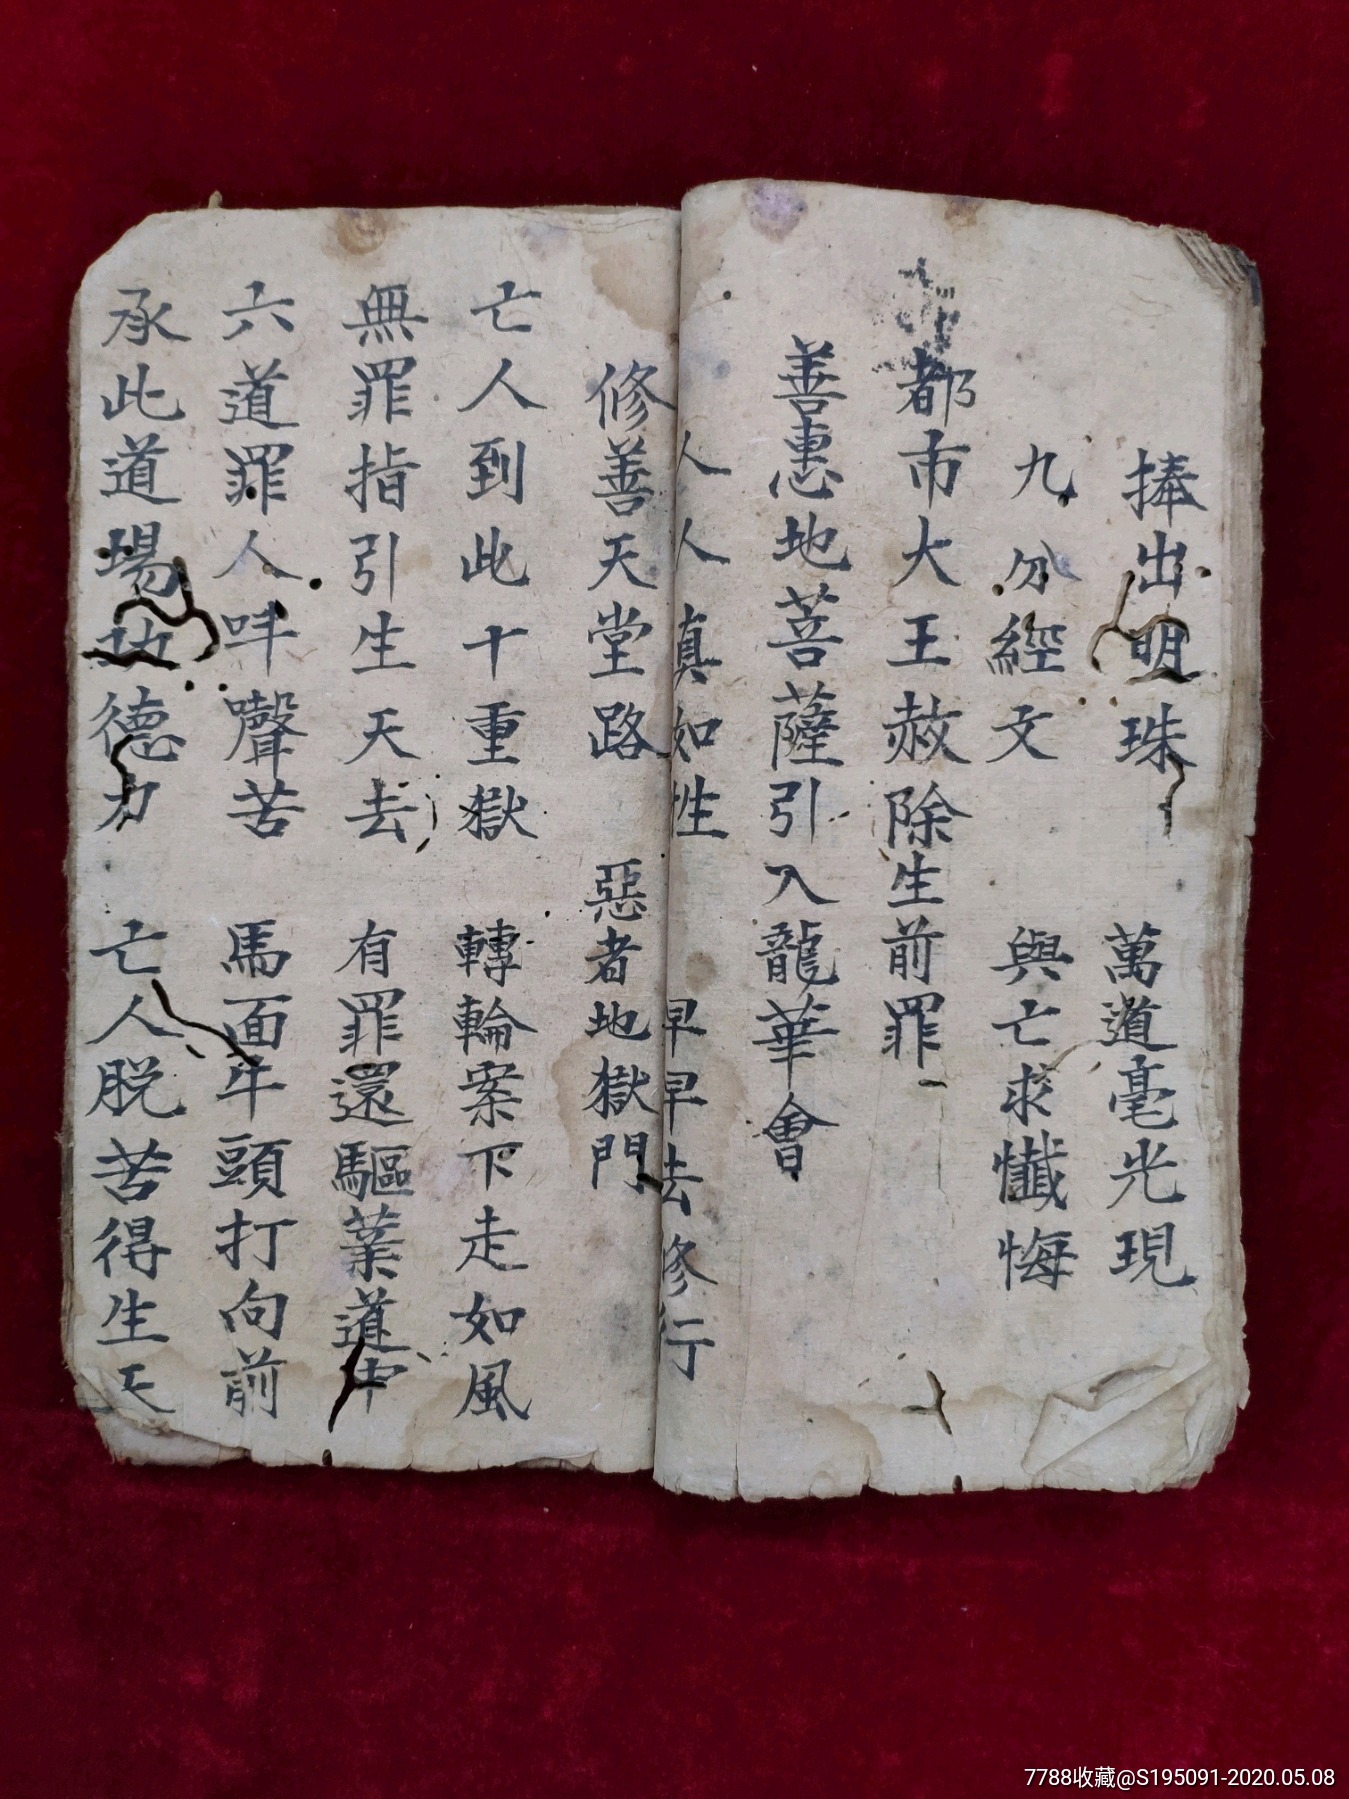 捧出明珠 萬道毫光現
九分經文 與亡求懺悔
都市大王赦除生前罪
善惠地菩薩引入龍華會
人人真如性 早早去修行
修善天堂路 惡者地獄門
亡人到此十重獄 轉輪案下走如風
無罪指引生天去 有罪還驅業道中
六道罪人吽聲苦 馬面牛頭打向前
承此道場功德力 亡人脱苦得生天
7788收藏@S195091-2020.05.08